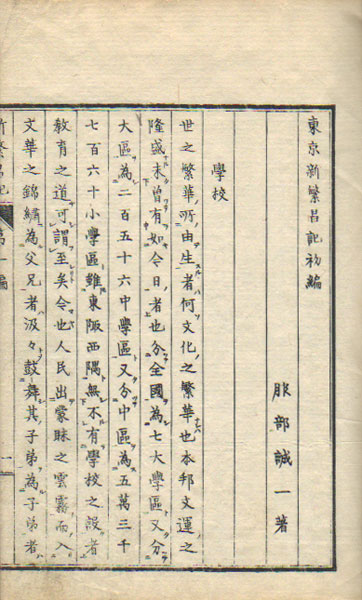 東京新繁昌記初編
服部誠一著
學校
世之繁華所由生者何文化之繁華也本邦文運之
隆盛未曾有如今日者也分全國為七大學區又分
大區為二百五十六中學區又分中區為五萬三千
七百六十小學區雖東陬西隅無不有學校之設者
教育之道可謂至矣今也人民出蒙昧之雲霧而入
文華之錦繡為父兄者汲々鼓舞其子弟為子弟者
新繁昌記
第一編
一